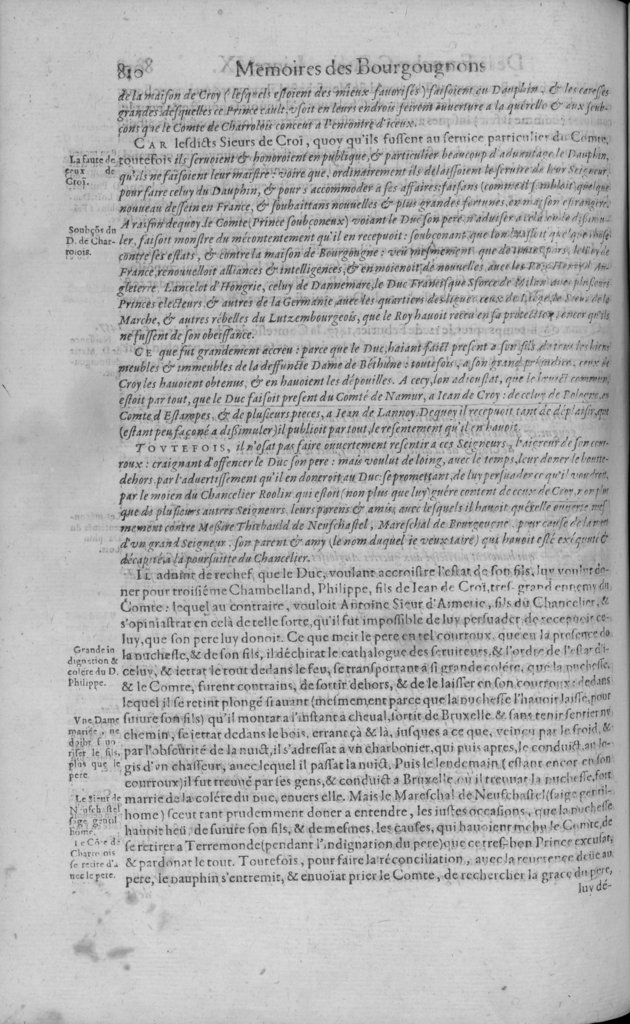 810 Memoires des Bourgougnons
de la maison de Croy (lesquels estoient des mieux fauorisés) faisoient au Dauphin, & les caresses
grandes desquelles ce Prince cault, vsoit en leurs endrois, feirent ouuerture a la quérelle & aux soub-
çons que le Comte de Charrolois conceut a l'encontre d'iceux.
CAR lesdicts Sieurs de Croï, quoy qu'ils fussent au seruice particulier du Comte,
toutefois ils seruoient & honoroient en publique, & particulier beaucoup d'aduantage le Dauphin,
qu'ils ne faisoient leur maistre: voire que, ordinairement ils délaissoient le seruice de leur Seigneur,
pour faire celuy du Dauphin, & pour s'accommoder a ses affaires: faisans (comme il sembloit) quelque
nouueau dessein en France, & souhaittans nouuelles & plus grandes fortunes, en maison estrangere.
A raison dequoy le Comte (Prince soubçoneux) voiant le Duc son pere n'aduiser a cela
ler, faisoit monstre du mécontentement qu'il en recepuoit: soubçonant que
contre ses estats, & contre la maison de Bourgougne: veu mesmement que le Roy de
France, renouuelloit alliances & intelligences, & en moienoit de nouuelles auec les Roy An-
gleterre, Lancelot d'Hongrie, celuy de Dannemarc, le Duc Francisque Sforce de Milan auec plusieurs
Princes electeurs, & autres de la Germanie auec les quartiers des ligues ceux de Liége, le Sieur de la
Marche, & autres rébelles du Lutzembourgeois, que le Roy hauoit receu en sa protection, encor qu'ils
ne fussent de son obeissance.
CE que fut grandement accreu: parce que le Duc, haiant faict present a son fils, de tous les biens
meubles & immeubles de la deffuncte Dame de Béthune: toutefois, a son grand ceux de
Croy les hauoient obtenus, & en hauoient les dépouilles. A cecy, lon adioustat, que le bruict commun
estoit par tout, que le Duc faisoit present du Comté de Namur, a Iean de Croy: de celuy de
Comte d'Estampes, & de plusieurs pieces, a Iean de Lannoy. Dequoy il recepuoit tant de déplaisir, que
(estant peu façoné a dißimuler) il publioit par tout, le resentement qu'il en hauoit.
TOVTEFOIS, il n'osat pas faire ouuertement resentir a ces Seigneurs, l'aigreur de son cour-
roux: craignant d'offencer le Duc son pere: mais voulut de loing, auec le temps, leur doner le boute-
dehors, par l'aduertissement qu'il en doneroit au Duc se promettant, de luy persuader ce qu'il voudroit,
par le moien du Chancelier Roolin qui estoit (non plus que luy) guére content de ceux de Croy, non plus
que de plusieurs autres Seigneurs, leurs parens & amis, auec lesquels il hauoit quérelle ouuerte mes-
mement contre Meßire Thiebauld de Neufchastel, Mareschal de Bourgougne, pour cause de la mort
d'vn grand Seigneur, son parent & amy (le nom duquel ie veux taire) qui hauoit esté exécuté &
décapité, a la poursuitte du Chancelier.
IL aduint de rechef, que le Duc, voulant accroistre l'estat de son fils, luy voulut do-
ner pour troisiéme Chambelland, Philippe, fils de Iean de Croï, tres-grand ennemy du
Comte: lequel au contraire, vouloit Antoine Sieur d'Aimerie, fils du Chancelier, &
s'opiniastrat en celà de telle sorte, qu'il fut impossible de luy persuader, de recepuoir ce-
luy, que son pere luy donoit. Ce que meit le pere en tel courroux, que en la presence de
la Duchesse, & de son fils, il déchirat le cathalogue des seruiteurs, & l'ordre de l'estat di-
celuy, & iettat le tout dedans le feu, se transportant a si grande colére, que la Duchesse,
& le Comte, furent contrains, de sortir dehors, & de le laisser en son courroux: dedans
lequel il se retint plongé si auant (mesmement parce que la Duchesse l'hauoit laissé, pour
suiure son fils) qu'il montat a l'instant a cheual, sortit de Bruxelle & sans tenir sentier ny
chemin, se iettat dedans le bois, errant çà & là, iusques a ce que, veincu par le froid, &
par l'obscurité de la nuict, il s'adressat a vn charbonier, qui puis apres, le conduict au lo-
gis d'vn chasseur, auec lequel il passat la nuict. Puis le lendemain (estant encor en son
courroux) il fut treuué par ses gens, & conduict a Bruxelle, où il treuuat la Duchesse, fort
marrie de la colére du Duc, enuers elle. Mais le Mareschal de Neufchastel (saige gentil-
home) sceut tant prudemment doner a entendre, les iustes occasions, que la Duchesse
hauoit heu, de suiure son fils, & de mesmes, les causes, qui hauoient mehu le Comte, de
se retirer a Terremonde (pendant l'indignation du pere) que ce tres-bon Prince excusat,
& pardonat le tout. Toutefois, pour faire la réconciliation, auec la reuerence deüe au
pere, le Dauphin s'entremit, & enuoïat prier le Comte, de rechercher la grace du pere,
luy dé-
La faute de
ceux de
Croï.
Soubçõs du
D. de Char-
rolois.
Grande in
dignation &
colére du D.
Philippe.
Vne Dame
mariée, ne
doibt fauo-
riser le fils,
plus que le
pere.
Le Sieur de
Neufchastel
saige gentil
home.
Le Cõte de
Charrolois
se retire d'a
uec le pere.